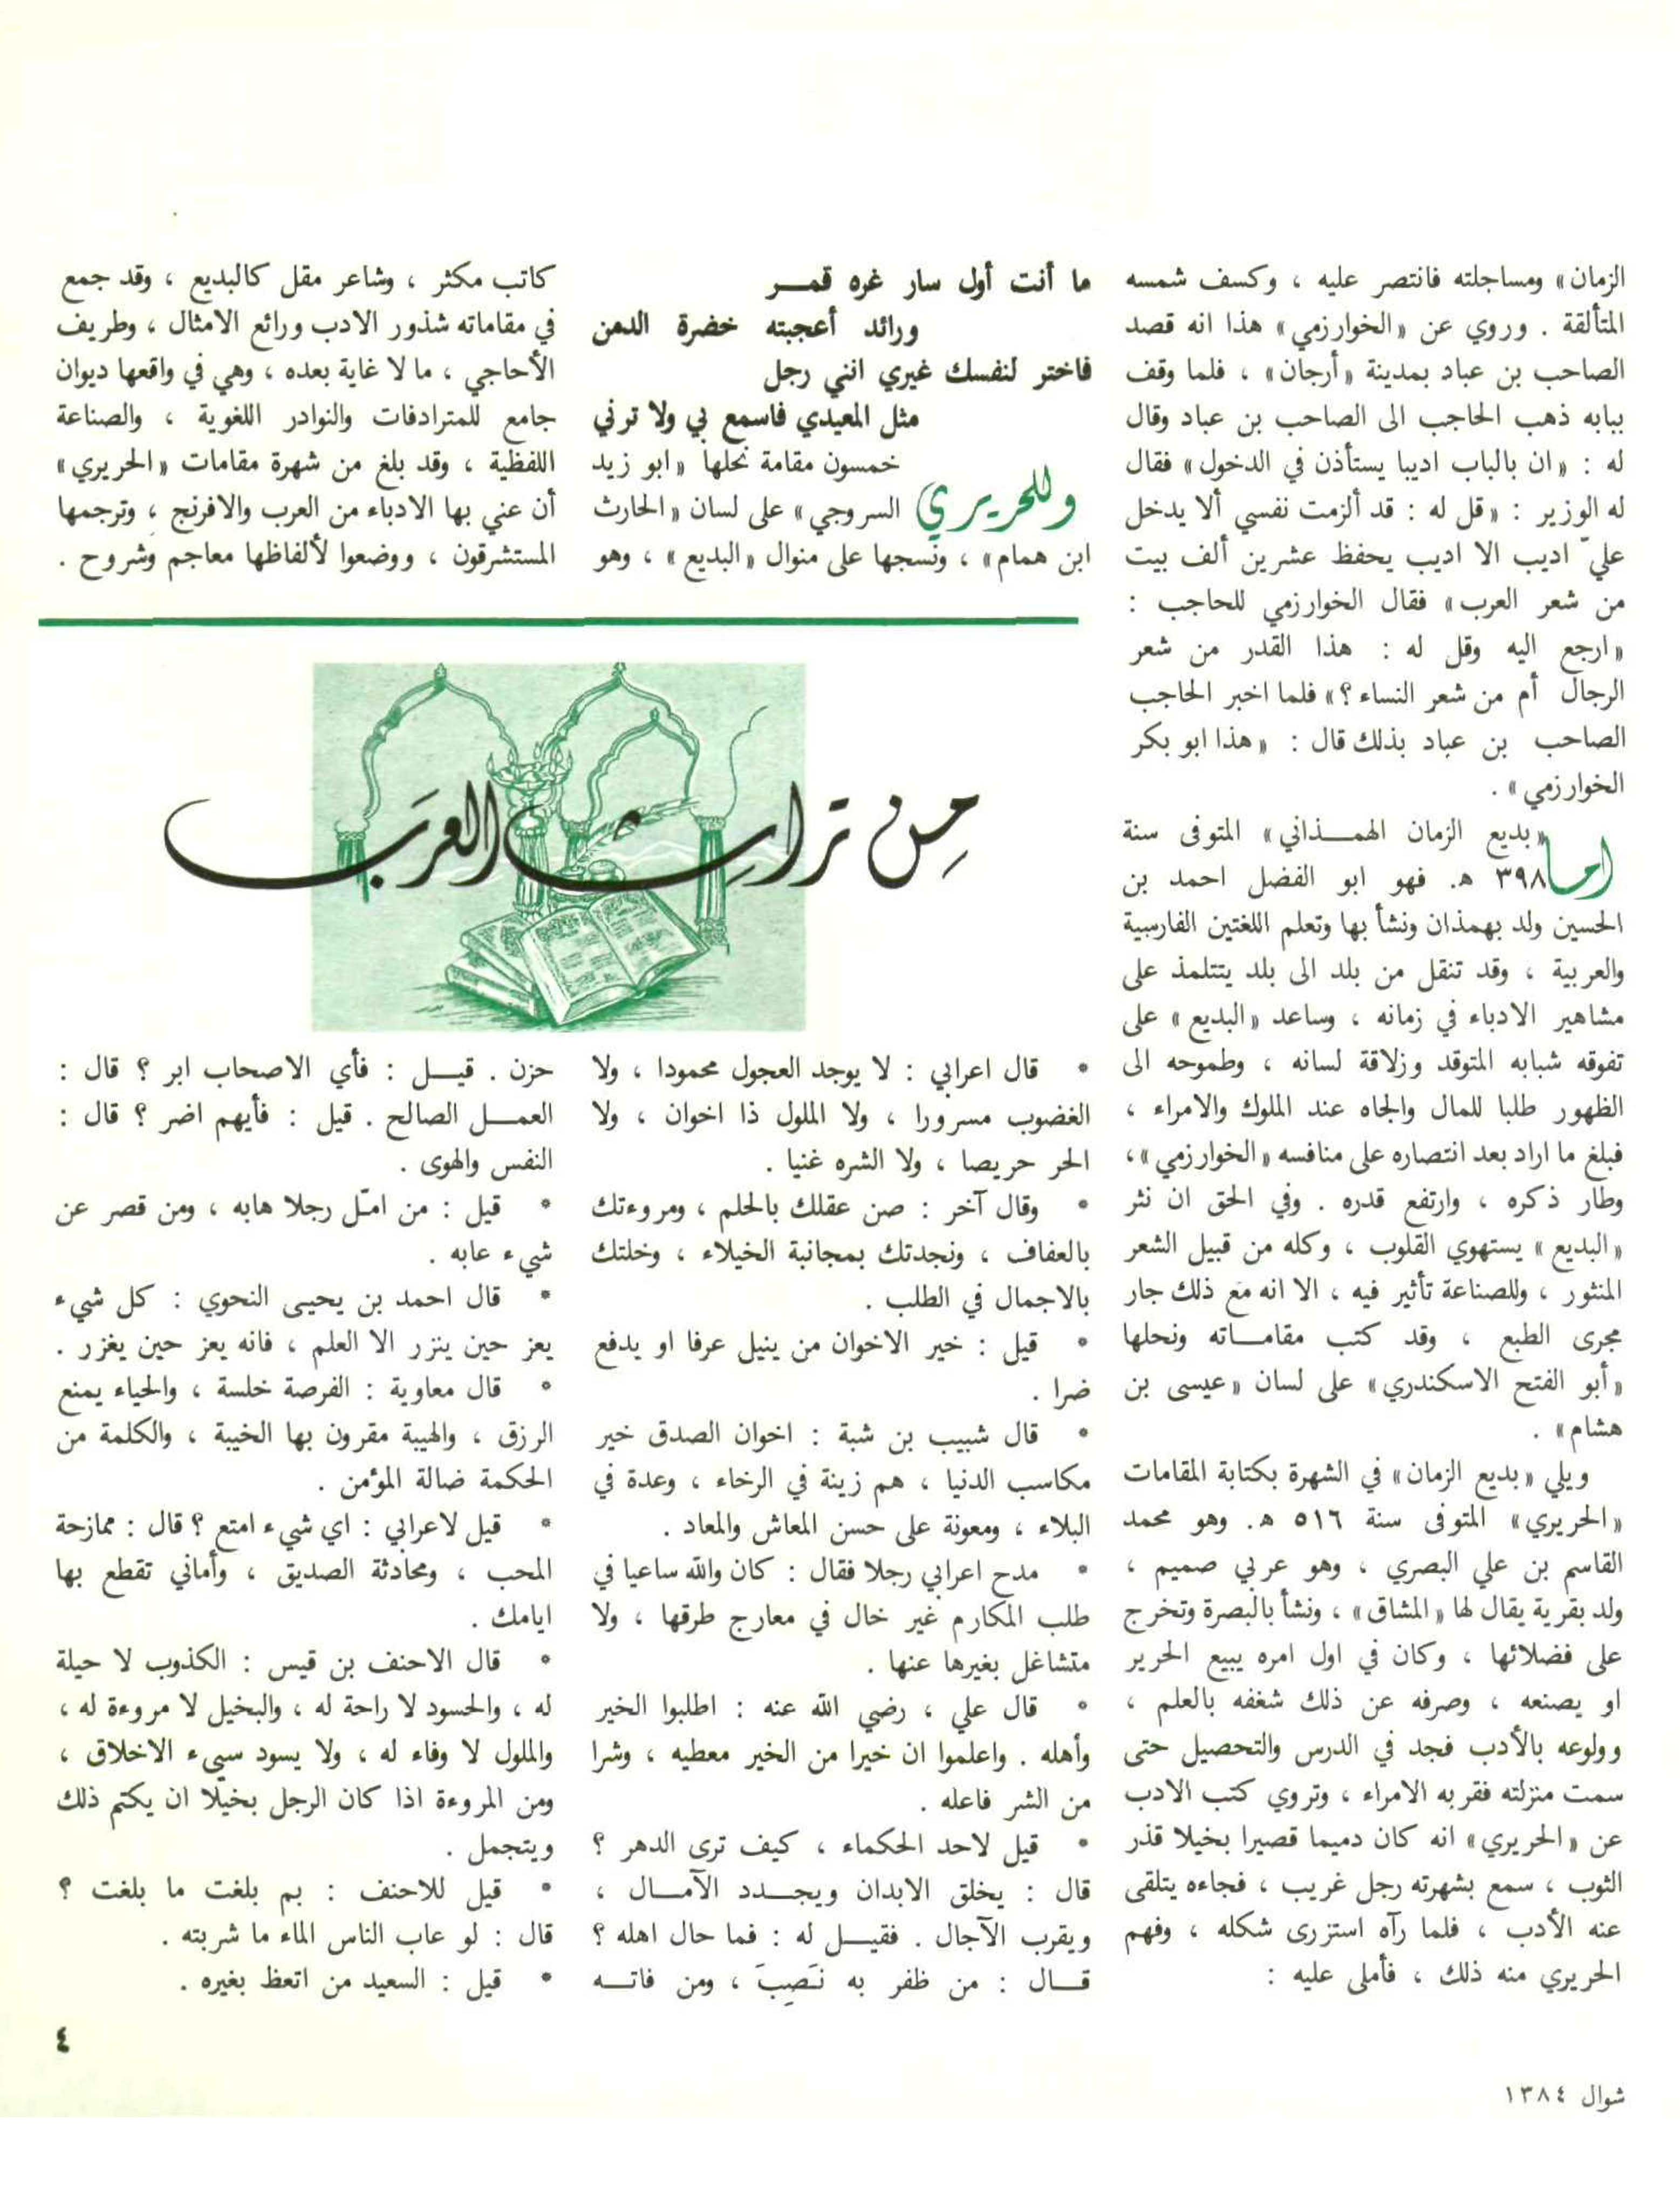 الزمان» ومساجلته فانتصر عليه ، وكسف شمسه
المتألقة . وروي عن «الخوارزمي» هذا انه قصد
الصاحب بن عباد بمدينة «أرجان» ، فلما وقف
ببابه ذهب الحاجب الى الصاحب بن عباد وقال
له : «ان بالباب اديبا يستأذن في الدخول» فقال
له الوزير : «قل له : قد ألزمت نفسي ألا يدخل
عليّ اديب الا اديب يحفظ عشرين ألف بيت
من شعر العرب» فقال الخوارزمي للحاجب :
«ارجع اليه وقل له : هذا القدر من شعر
الرجال أم من شعر النساء ؟» فلما اخبر الحاجب
الصاحب بن عباد بذلك قال : «هذا ابو بكر
الخوارزمي» .
اما «بديع الزمان الهمــذاني» المتوفى سنة
٣٩٨ ه. فهو ابو الفضل احمد بن
الحسين ولد بهمذان ونشأ بها وتعلم اللغتين الفارسية
والعربية ، وقد تنقل من بلد الى بلد يتتلمذ على
مشاهير الادباء في زمانه ، وساعد «البديع» على
تفوقه شبابه المتوقد وزلاقة لسانه ، وطموحه الى
الظهور طلبا للمال والجاه عند الملوك والامراء ،
فبلغ ما اراد بعد انتصاره على منافسه «الخوارزمي»،
وطار ذكره ، وارتفع قدره . وفي الحق ان نثر
«البديع» يستهوي القلوب ، وكله من قبيل الشعر
المنثور ، وللصناعة تأثير فيه ، الا انه مع ذلك جار
مجرى الطبع ، وقد كتب مقامــاته ونحلها
«أبو الفتح الاسكندري» على لسان «عيسى بن
هشام» .
ويلي «بديع الزمان» في الشهرة بكتابة المقامات
«الحريري» المتوفى سنة ٥١٦ ه. وهو محمد
القاسم بن علي البصري ، وهو عربي صميم ،
ولد بقرية يقال لها «المشاق» ، ونشأ بالبصرة وتخرج
على فضلائها ، وكان في اول امره يبيع الحرير
او يصنعه ، وصرفه عن ذلك شغفه بالعلم ،
وولوعه بالأدب فجد في الدرس والتحصيل حتى
سمت منزلته فقربه الامراء ، وتروي كتب الادب
عن «الحريري» انه كان دميما قصيرا بخيلا قذر
الثوب ، سمع بشهرته رجل غريب ، فجاءه يتلقى
عنه الأدب ، فلما رآه استزرى شكله ، وفهم
الحريري منه ذلك ، فأملى عليه :
ما أنت أول سار غره قمــر
ورائد أعجبته خضرة الدمن
فاختر لنفسك غيري انني رجل
مثل المعيدي فاسمع بي ولا ترني
وللحريري خمسون مقامة نحلها «ابو زيد
السروجي» على لسان «الحارث
ابن همام» ، ونسجها على منوال «البديع» ، وهو
كاتب مكثر ، وشاعر مقل كالبديع ، وقد جمع
في مقاماته شذور الادب ورائع الامثال ، وطريف
الأحاجي ، ما لا غاية بعده ، وهي في واقعها ديوان
جامع للمترادفات والنوادر اللغوية ، والصناعة
اللفظية ، وقد بلغ من شهرة مقامات «الحريري»
أن عني بها الادباء من العرب والافرنج ، وترجمها
المستشرقون ، ووضعوا لألفاظها معاجم وشروح .
مِن تراثِ العرَب
• قال اعرابي : لا يوجد العجول محمودا ، ولا
الغضوب مسرورا ، ولا الملول ذا اخوان ، ولا
الحر حريصا ، ولا الشره غنيا .
• وقال آخر : صن عقلك بالحلم ، ومروءتك
بالعفاف ، ونجدتك بمجانبة الخيلاء ، وخلتك
بالاجمال في الطلب .
• قيل : خير الاخوان من ينيل عرفا او يدفع
ضرا .
• قال شبيب بن شبة : اخوان الصدق خير
مكاسب الدنيا ، هم زينة في الرخاء ، وعدة في
البلاء ، ومعونة على حسن المعاش والمعاد .
• مدح اعرابي رجلا فقال : كان والله ساعيا في
طلب المكارم غير خال في معارج طرقها ، ولا
متشاغل بغيرها عنها .
• قال علي ، رضي الله عنه : اطلبوا الخير
وأهله . واعلموا ان خيرا من الخير معطيه ، وشرا
من الشر فاعله .
• قيل لاحد الحكماء ، كيف ترى الدهر ؟
قال : يخلق الابدان ويجــدد الآمــال ،
ويقرب الآجال . فقيــل له : فما حال اهله ؟
قــال : من ظفر به نَصِبَ ، ومن فاتــه
حزن . قيــل : فأي الاصحاب ابر ؟ قال :
العمــل الصالح . قيل : فأيهم اضر ؟ قال :
النفس والهوى .
• قيل : من امّل رجلا هابه ، ومن قصر عن
شيء عابه .
• قال احمد بن يحيى النحوي : كل شيء
يعز حين ينزر الا العلم ، فانه يعز حين يغزر .
• قال معاوية : الفرصة خلسة ، والحياء يمنع
الرزق ، والهيبة مقرون بها الخيبة ، والكلمة من
الحكمة ضالة المؤمن .
• قيل لاعرابي : اي شيء امتع ؟ قال : ممازحة
المحب ، ومحادثة الصديق ، وأماني تقطع بها
ايامك .
• قال الاحنف بن قيس : الكذوب لا حيلة
له ، والحسود لا راحة له ، والبخيل لا مروءة له ،
والملول لا وفاء له ، ولا يسود سيىء الاخلاق ،
ومن المروءة اذا كان الرجل بخيلا ان يكتم ذلك
ويتجمل .
• قيل للاحنف : بم بلغت ما بلغت ؟
قال : لو عاب الناس الماء ما شربته .
• قيل : السعيد من اتعظ بغيره .
٤
شوال ١٣٨٤